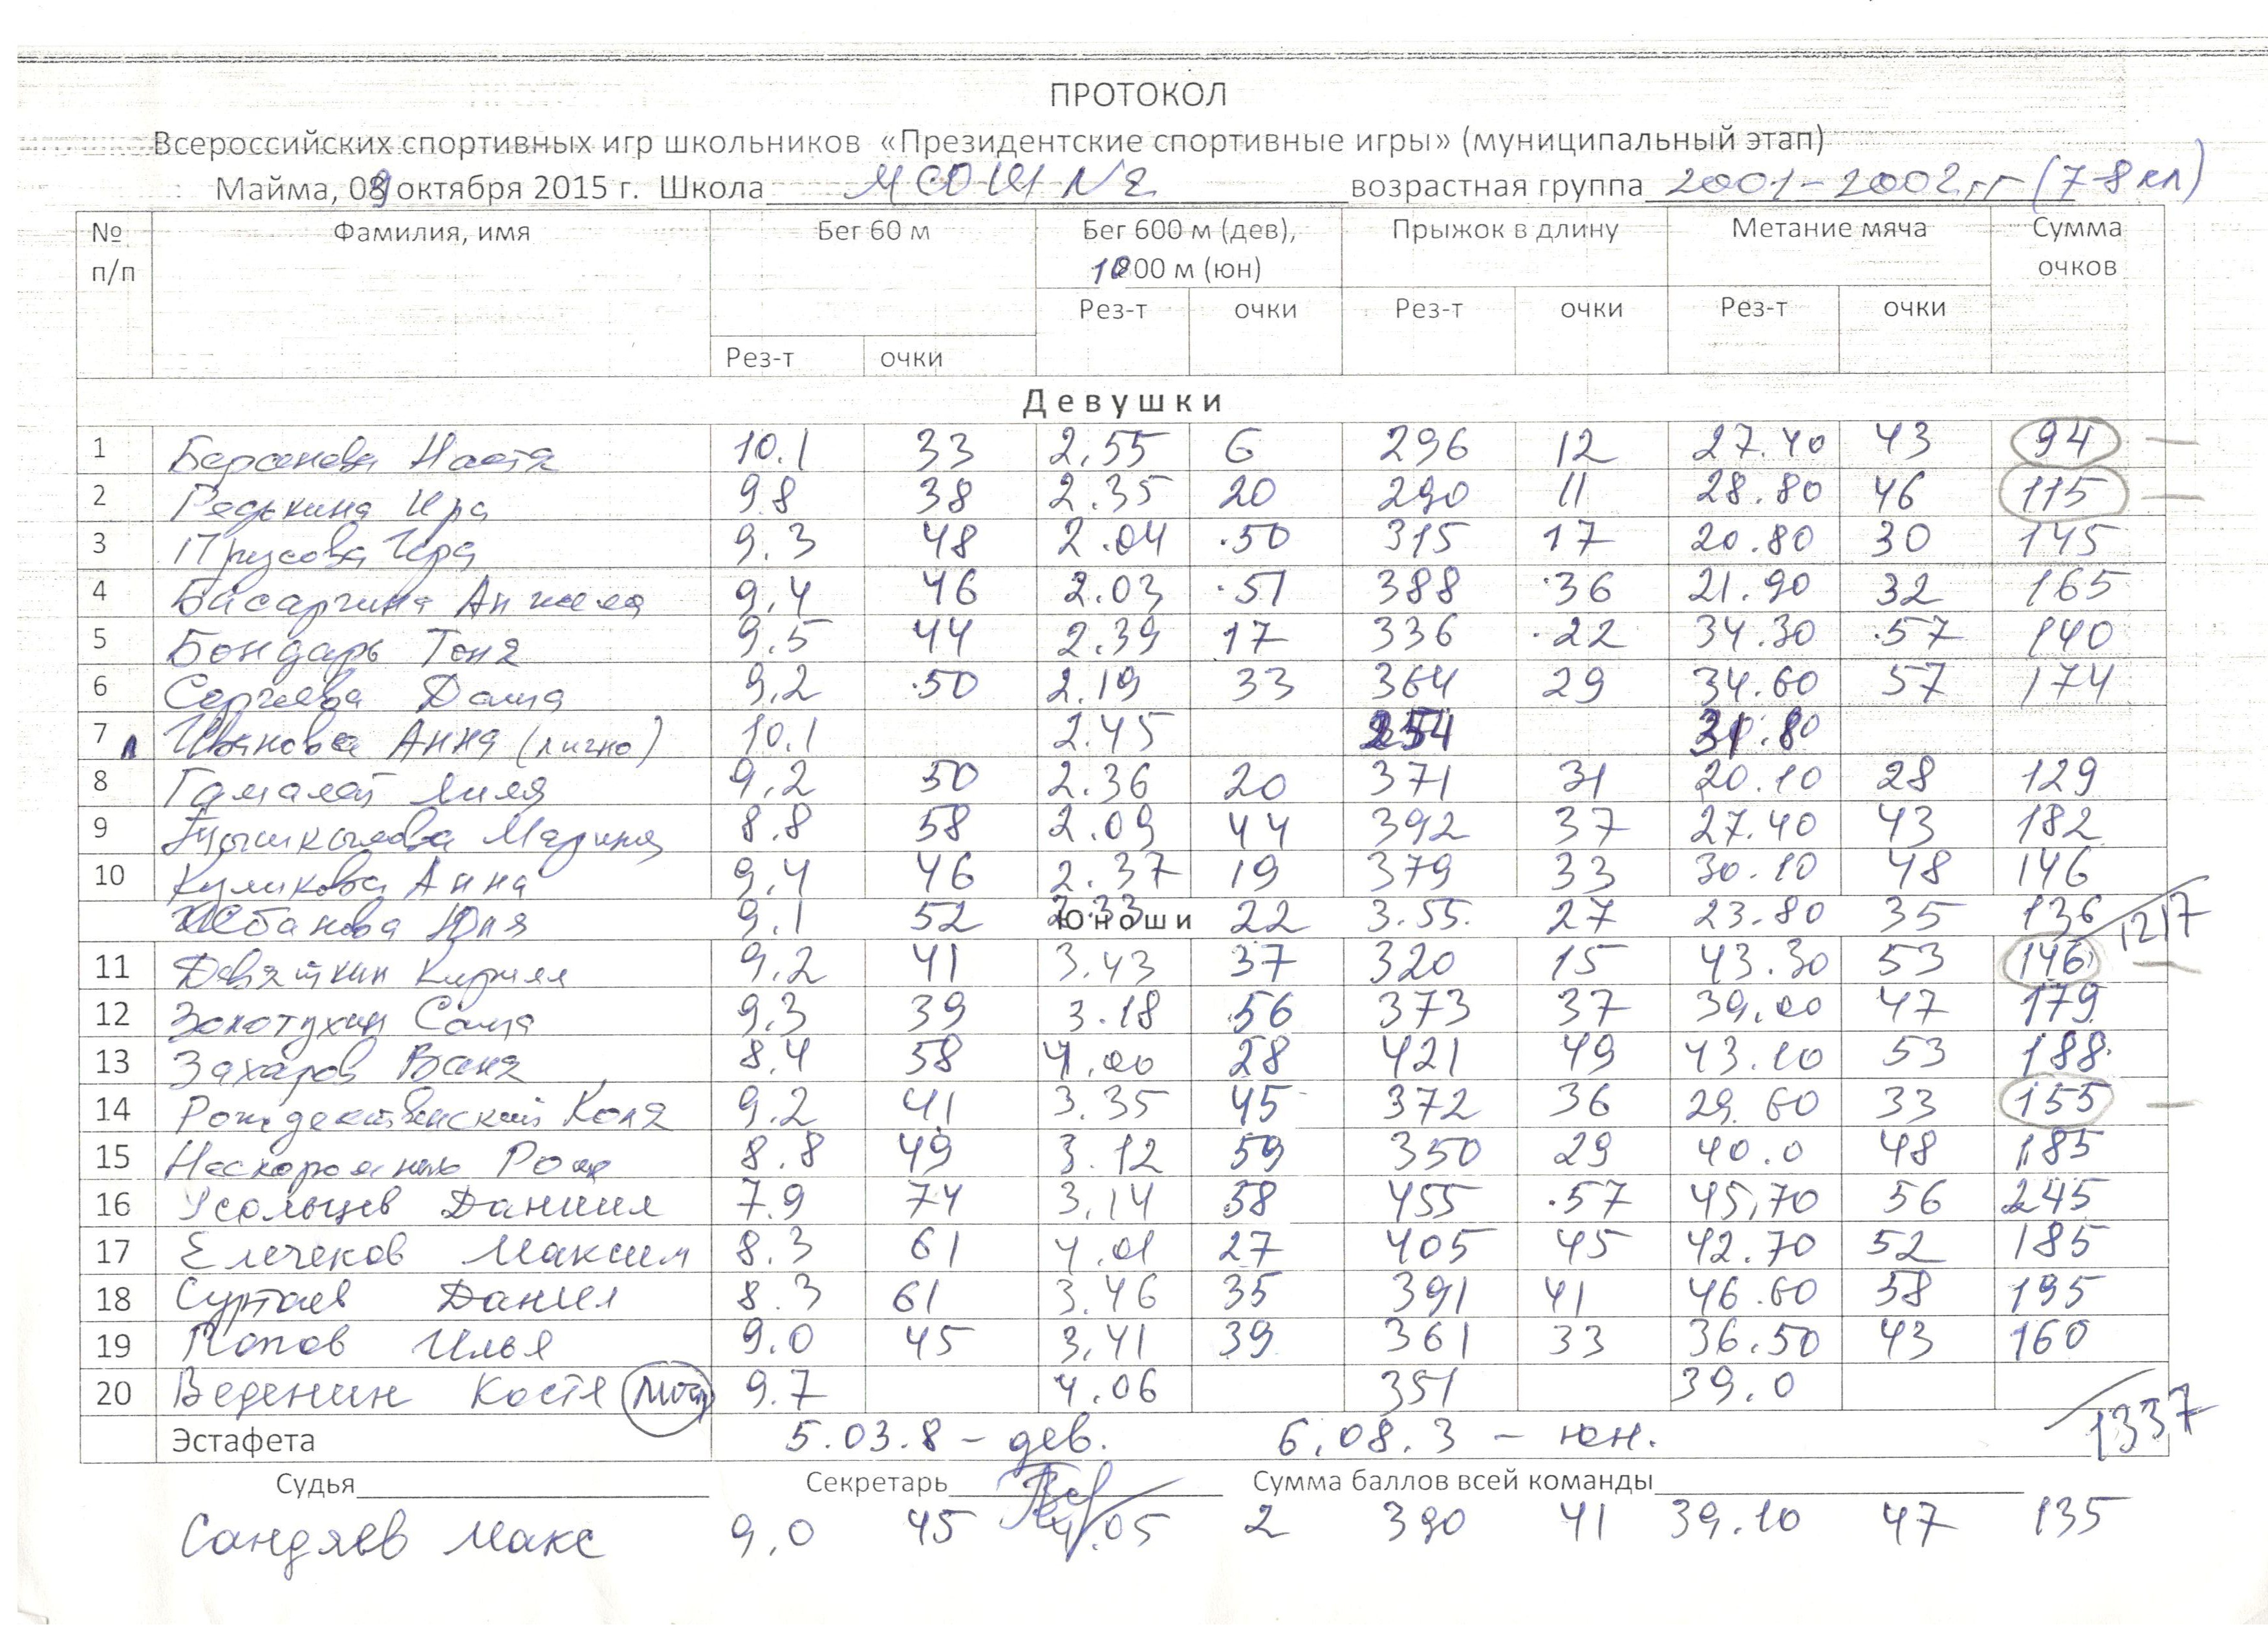 ПРОТОКОЛ
Всероссийских спортивных игр школьников «Президентские спортивные игры» (муниципальный этап)
Майма, 09 октября 2015 г. Школа МСОШ №2 возрастная группа 2001-2002 гг (7-8 кл)
№ п/п Фамилия, имя Бег 60 м Бег 600 м (дев), 1000 м (юн) Прыжок в длину Метание мяча Сумма очков
Рез-т очки Рез-т очки Рез-т очки Рез-т очки
Девушки
1 Настя 10.1 33 2,55 6 296 12 27.40 43 94
2 Редькина Ира 9.8 38 2.35 20 290 11 28.80 46 115
3 Прусова Ира 9.3 48 2.04 50 315 17 20.80 30 145
4 Басаргина Анжела 9,4 46 2.03 51 388 36 21.90 32 165
5 Бондарь Тоня 9.5 44 2.39 17 336 22 34.30 57 140
6 Сергеева Даша 9,2 50 2.19 33 364 29 34.60 57 174
7 л Иванова Анна (лично) 10.1 2.45 254 31.80
8 Гамалей Лиля 9,2 50 2.36 20 371 31 20.10 28 129
9 Марина 8.8 58 2.09 44 392 37 27.40 43 182
10 Куликова Анна 9,4 46 2.37 19 379 33 30.10 48 146
Юля 9.1 52 2.33 22 3.55. 27 23.80 35 136 1217
Юноши
11 Девяткин Кирилл 9,2 41 3.43 37 320 15 43.30 53 146
12 Золотухин Саша 9.3 39 3.18 56 373 37 39,00 47 179
13 Захаров Ваня 8.4 58 4.00 28 421 49 43.10 53 188
14 Рождественский Коля 9.2 41 3.35 45 372 36 29.60 33 155
15 Рома 8.8 49 3.12 59 350 29 40.0 48 185
16 Усольцев Даниил 7.9 74 3,14 58 455 57 45,70 56 245
17 Елечеков Максим 8.3 61 4.01 27 405 45 42.70 52 185
18 Суртаев Данил 8.3 61 3.46 35 391 41 46.60 58 195
19 Попов Илья 9.0 45 3,41 39 361 33 36.50 43 160
20 Веденин Костя 9.7 4.06 351 39.0
Эстафета 5.03.8 – дев. 6,08.3 – юн. 1337
Судья Секретарь Сумма баллов всей команды
Сандяев Макс 9,0 45 4.05 2 390 41 39.10 47 135